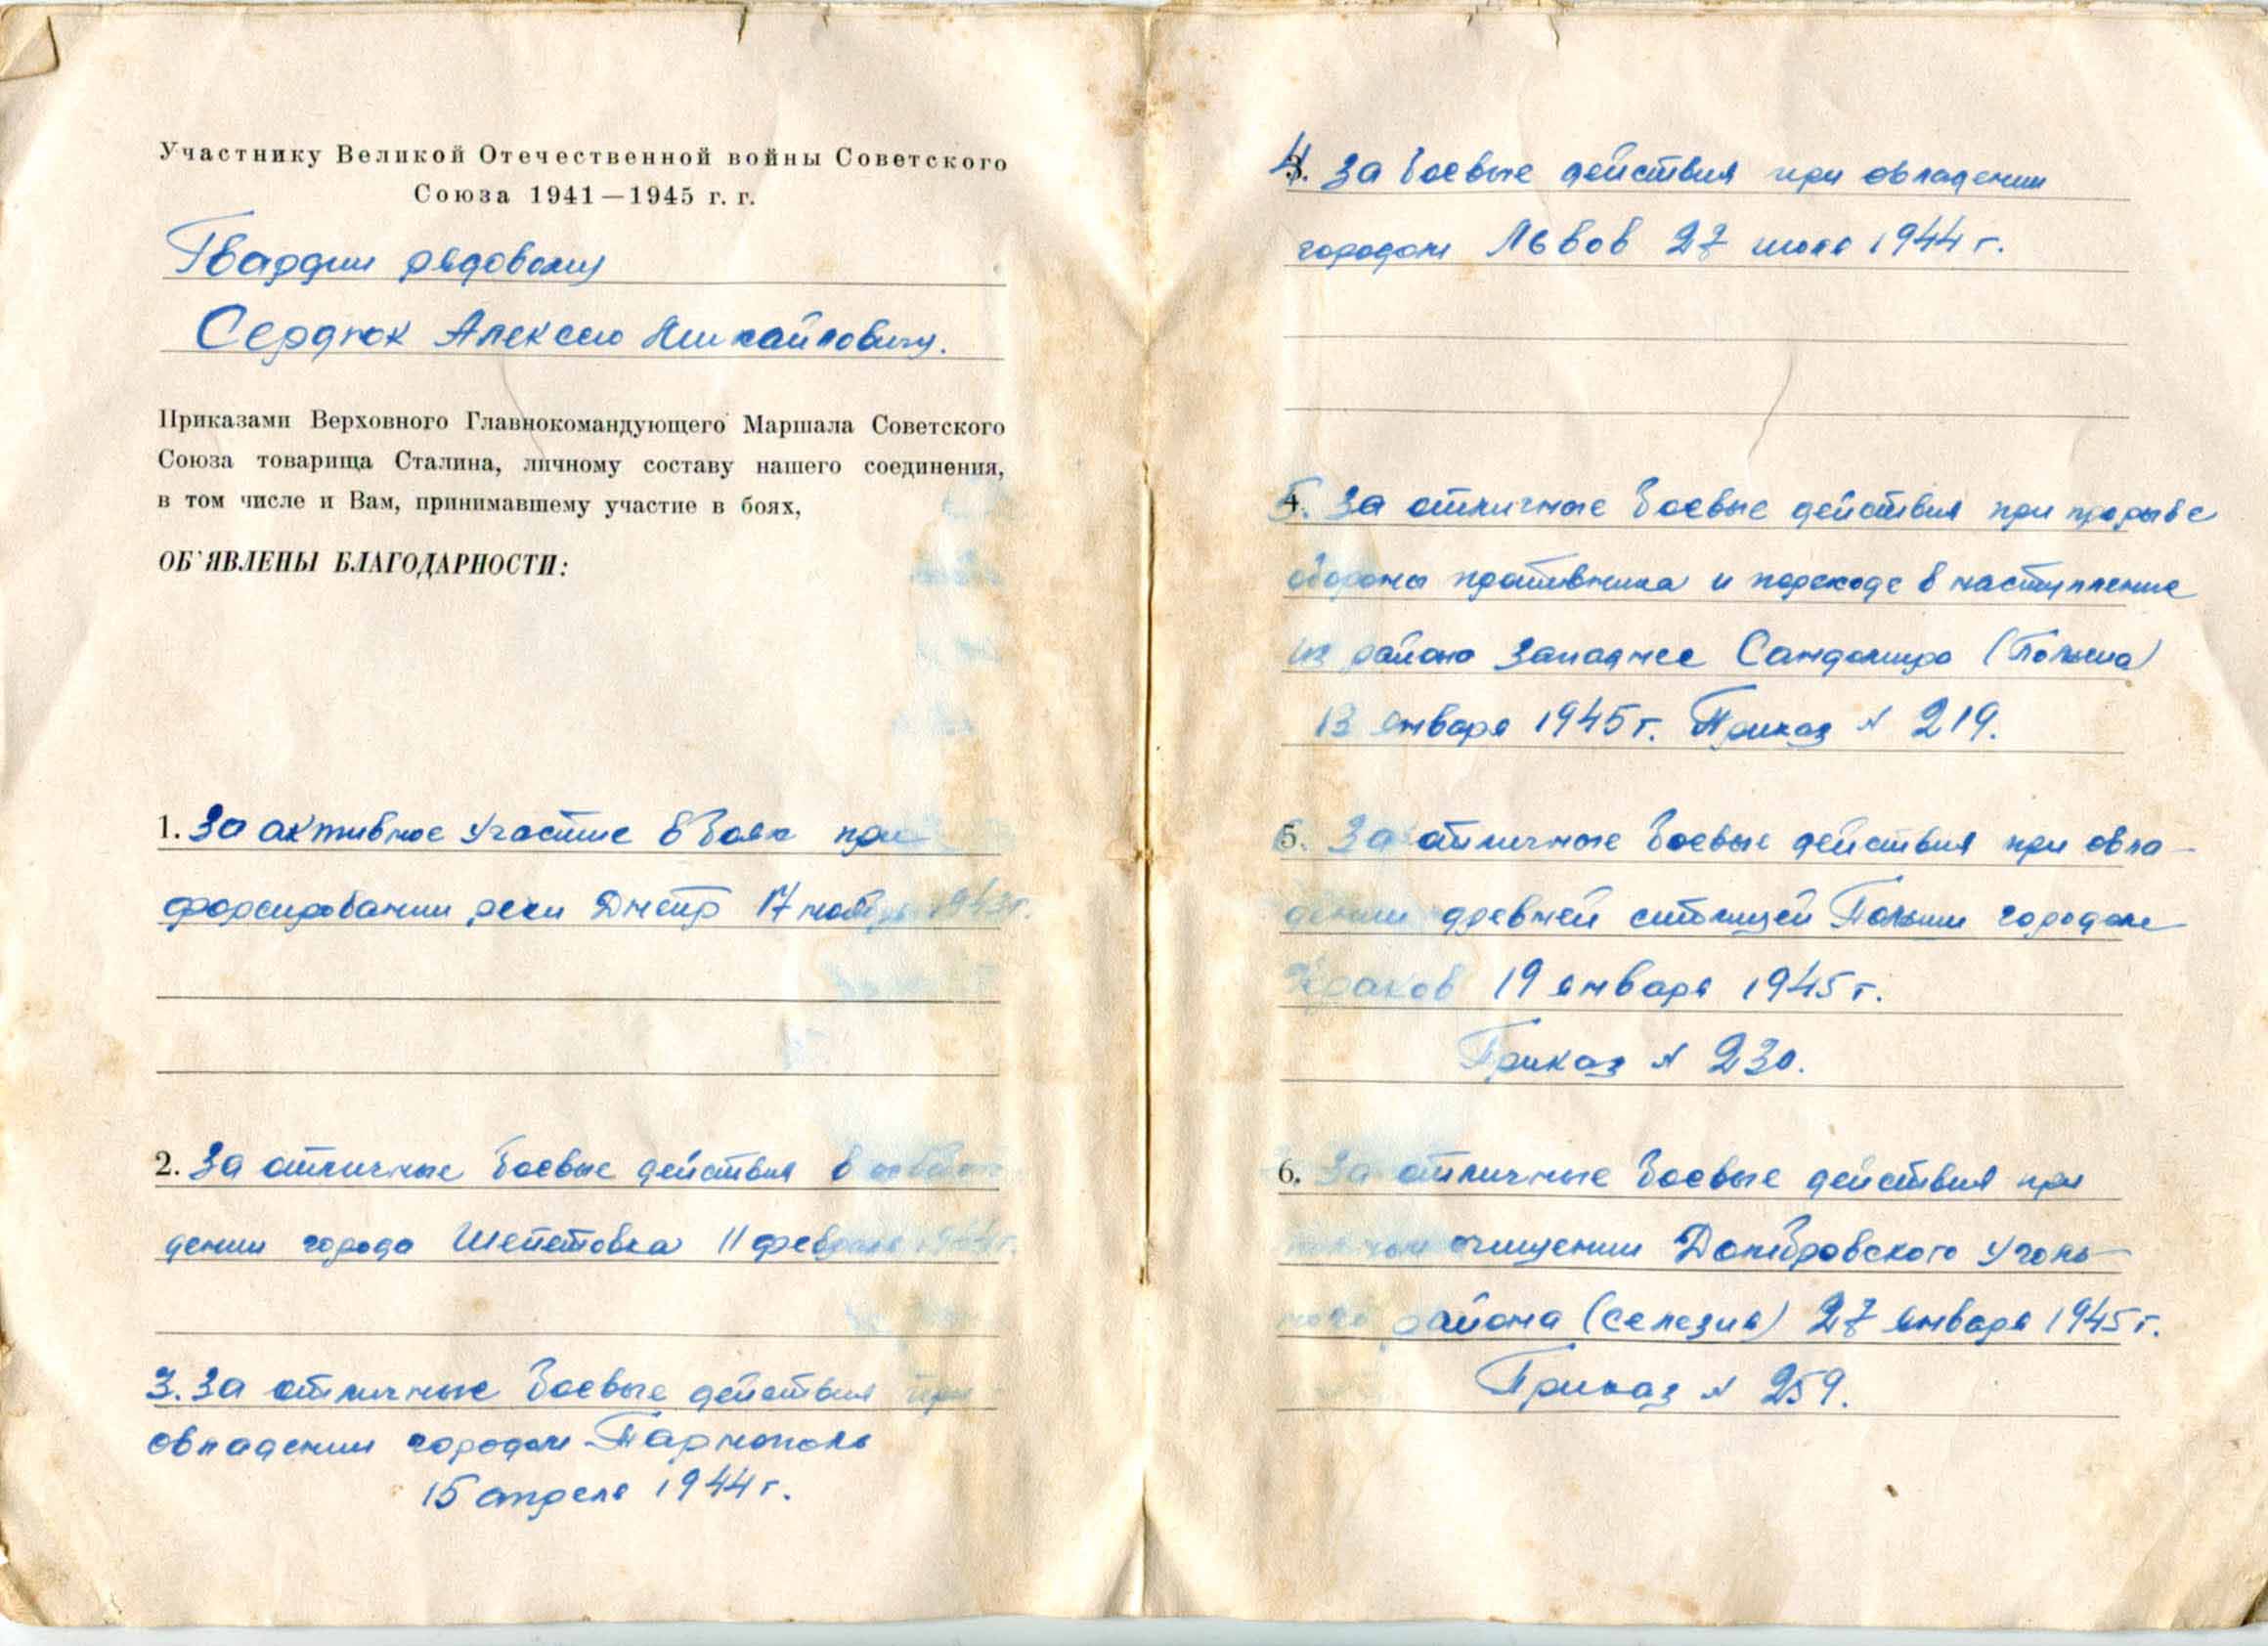 Участнику Великой Отечественной войны Советского
Союза 1941—1945 г. г.
Гвардии рядовому
Сердюк Алексею Михайловичу.
Приказами Верховного Главнокомандующего Маршала Советского
Союза товарища Сталина, личному составу нашего соединения,
в том числе и Вам, принимавшему участие в боях,
ОБ'ЯВЛЕНЫ БЛАГОДАРНОСТИ:
1. За активное участие в боях при
форсировании реки Днепр 17 ноября 1943 г.
2. За отличные боевые действия в
дении города Шепетовка 11 февраля 1944 г.
3. За отличные боевые действия при
овладении городом Тарнополь
15 апреля 1944 г.
4. За боевые действия при овладении
городом Львов 27 июля 1944 г.
5. За отличные боевые действия при прорыве
обороны противника и переходе в наступление
из района западнее Сандомира (Польша)
13 января 1945 г. Приказ № 219.
6. За отличные боевые действия при овла-
дении древней столицей Польши городом
Краков 19 января 1945 г.
Приказ № 230.
6. За отличные боевые действия при
очищении Домбровского уголь-
ного района (Селезия) 27 января 1945 г.
Приказ № 259.